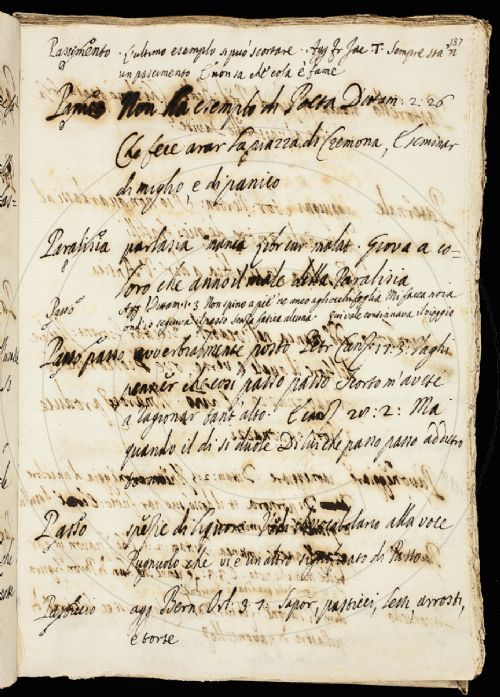 187
Pascimento L'ultimo esemplo si può scortare. Agg. fr. Jac. T. sempre sta 'n
un pascimento E non sa che cosa è fame
Panico Non ha esemplo di Poeta Dittam: 2: 26
Che fece arar la piazza di Cremona, E seminar
di miglio e di panico
Paralisia parlasia manca Giova a co-
loro che anno il male della Paralisia
Passo Agg. Dittam. 3 Non pino a piè ne anco agli occhi soglia Mi facea noia
ond'io seguiva il passo senza fatica alcuna qui vale continuava il viaggio
Passo passo avverbialmente posto Petr. Canz. 17. 3. Vaghi
pensier che così passo passo Scorto m'avete
a ragionar tant'alto. E canz. 20: 2: Ma
quando il dì si duole Di lui che passo passo addietro
Pasto spezie di Vocabolario alla voce
Pugnuolo che vi è un altro significato di Pasto
Pasticcio agg. Bern. Orl. 3. 7. Sapor, pasticci, lessi, arrosti,
e torte